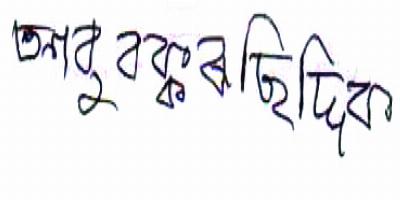 আবু বক্কর ছিদ্দিক